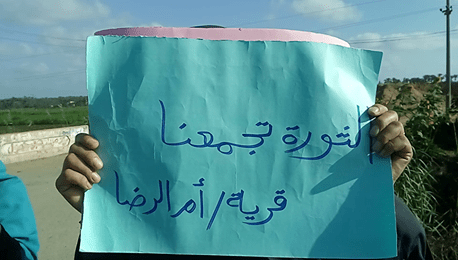 الثورة تجمعنا
قرية/أم الرضا